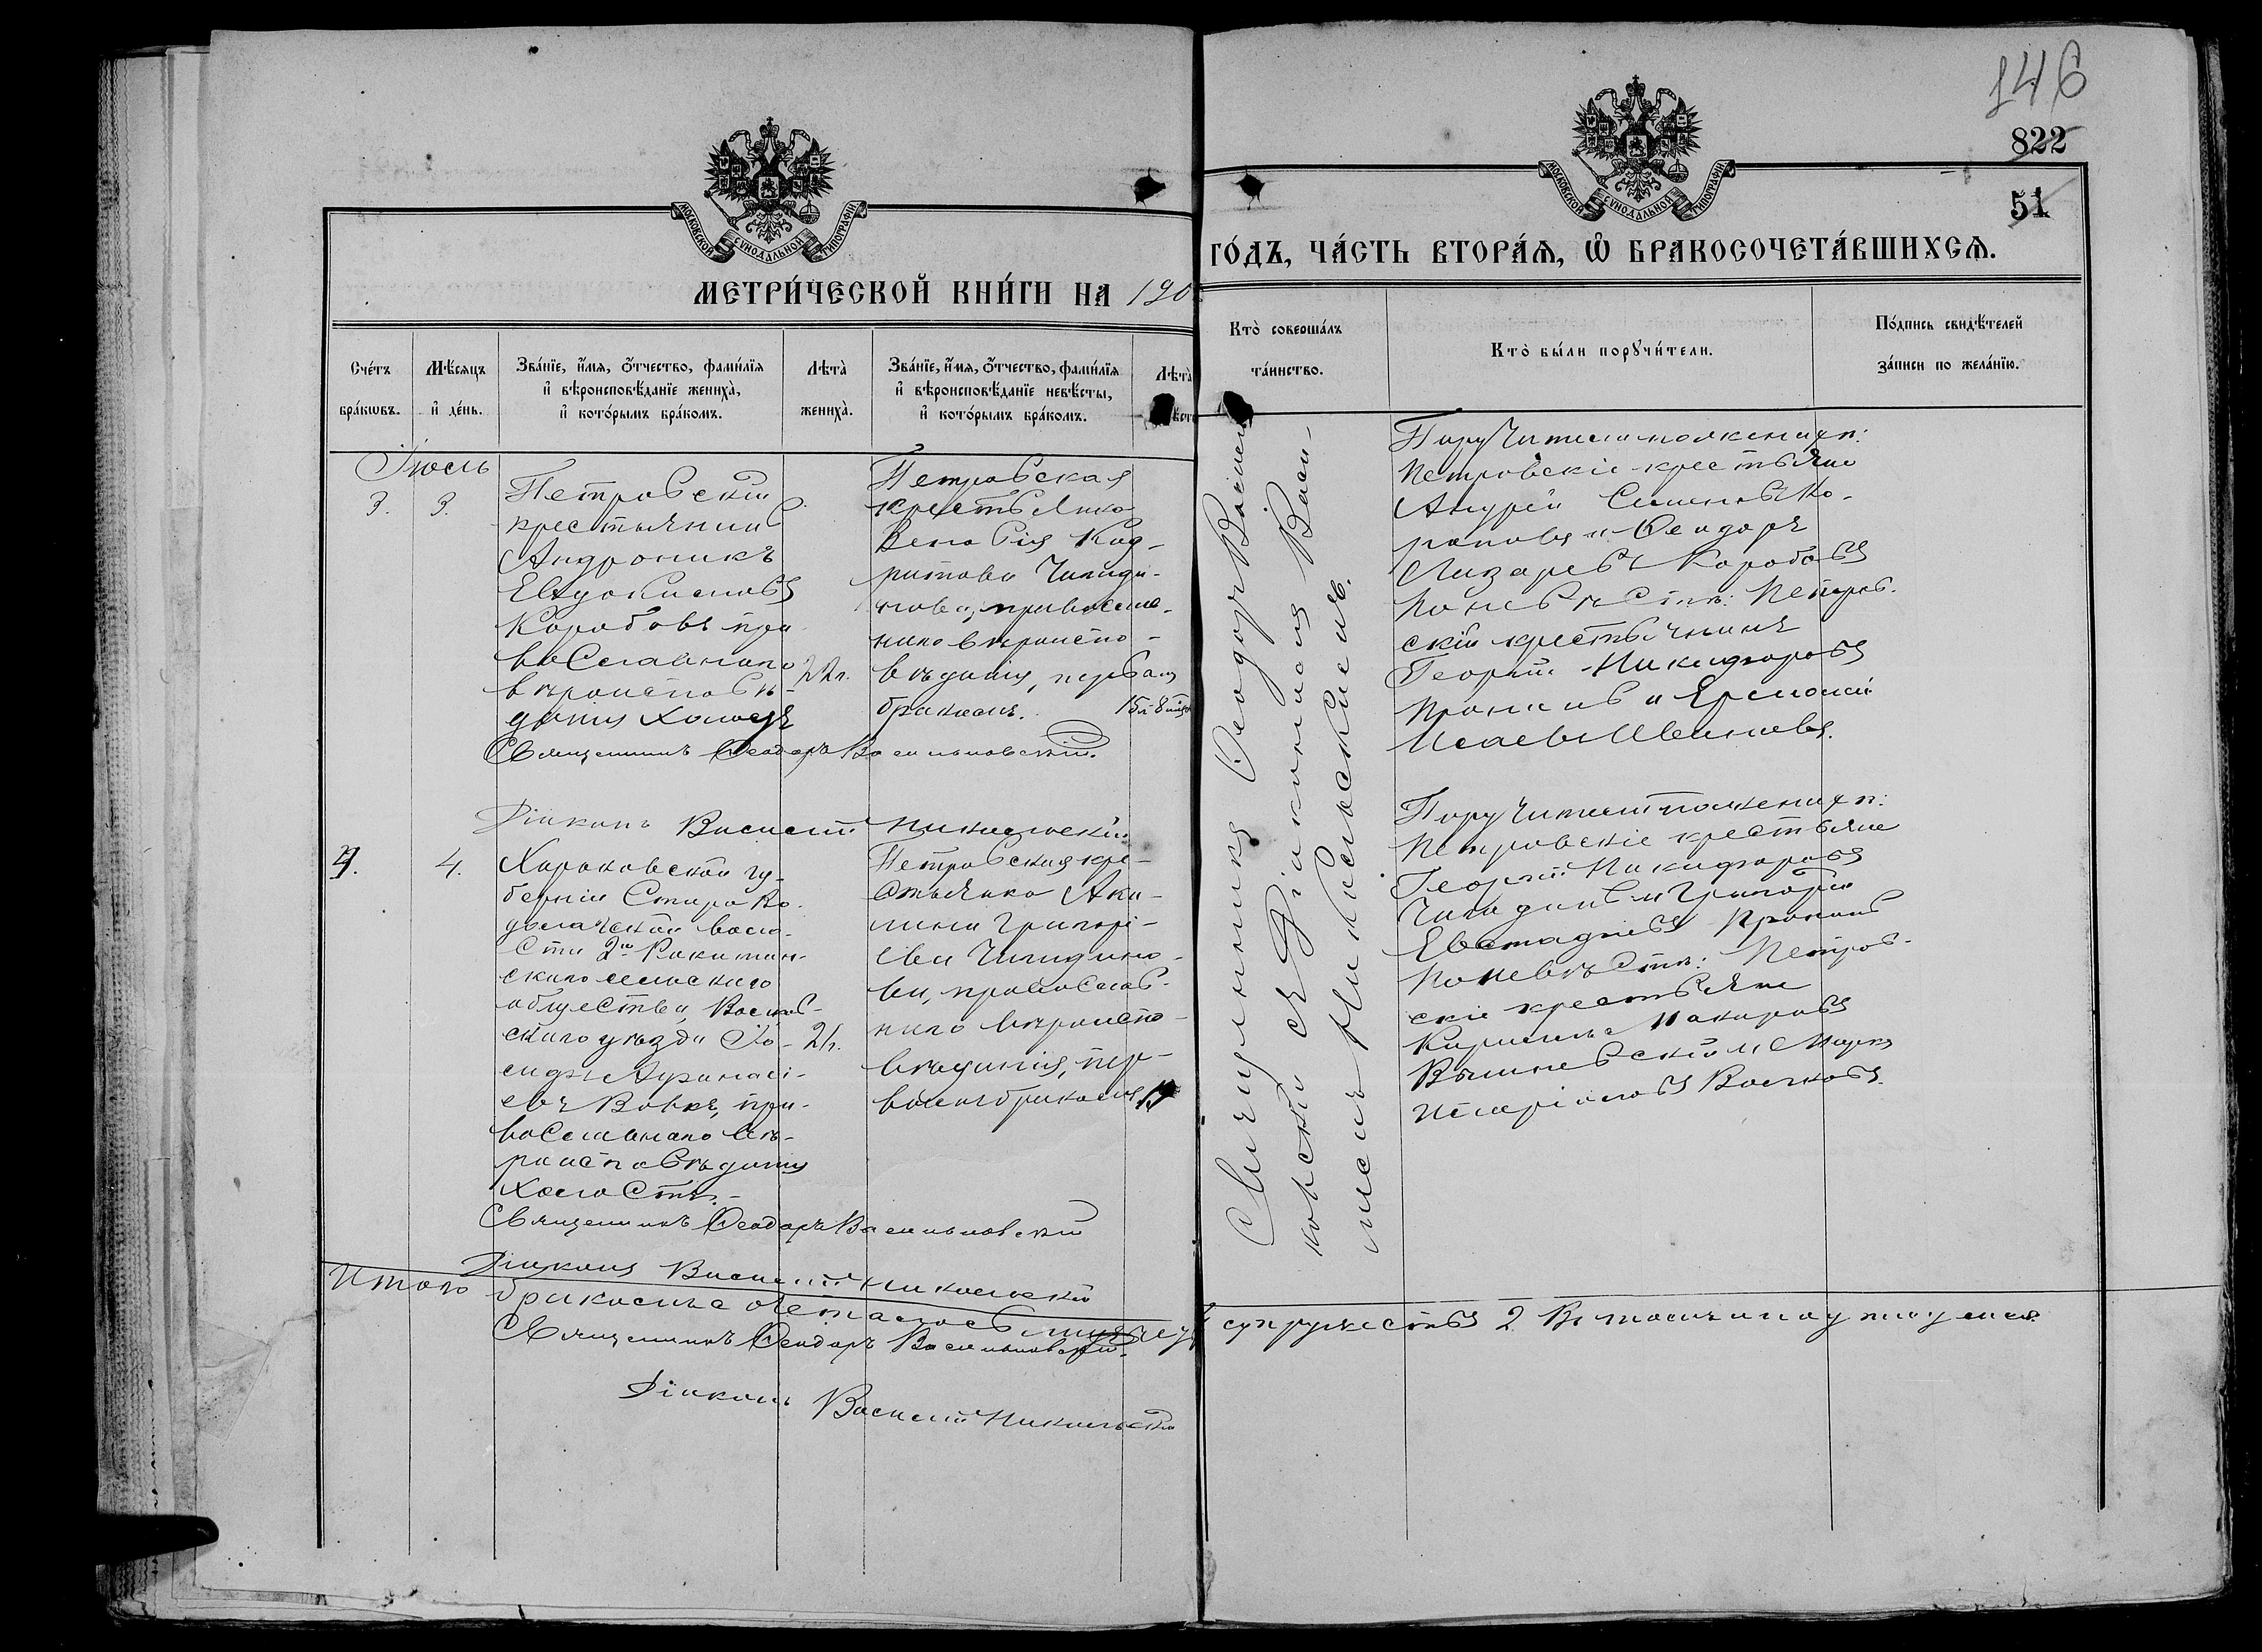 146
822
51
МОСКОВСКОЙ СѴНОДАЛЬНОЙ ТИПОГРАФІИ
МОСКОВСКОЙ СѴНОДАЛЬНОЙ ТИПОГРАФІИ
МЕТРИ́ЧЕСКОЙ КНИ́ГИ НА 190
ГО́ДЪ, ЧА́СТЬ ВТОРА́Ѧ, Ѽ БРАКОСОЧЕТА́ВШИХСѦ.
Сче́тъ
бра́кѡвъ.
Мѣ́сяцъ
и҆ де́нь.
Зва́нїе, и҆́мѧ, ѻ҆́тчество, фами́лїѧ
и҆ вѣроисповѣ́данїе жениха̀,
и҆ кото́рымъ бра́комъ.
Лѣта̀
жениха̀.
Зва́нїе, и҆́мѧ, ѻ҆́тчество, фами́лїѧ
и҆ вѣроисповѣ́данїе невѣ́сты,
и҆ кото́рымъ бра́комъ.
Лѣта̀
Кто̀ соверша́лъ
та́инство.
Кто̀ бы́ли порꙋчи́тели.
По́дпись свидѣ́телей
за́писи по жела́нїю.
Іюль
3.
3.
Петровскій
крестьянинъ
Андроникъ
Евдокимовъ
Коробовъ пра
вославнаго
вѣроисповѣ-
данія холостъ
22 л.
Петровская
крестьянка
Зеновія Код-
ратова Чипиди-
нова, православ-
наго вѣроиспо-
вѣданія, первымъ
бракомъ.
15 л 8 мѣс
Священникъ Ѳеодоръ Васильковскій.
Діаконъ Василій Никольскій
Поручители по женихѣ:
Петровскіе крестьяне
Андрей Семеновъ Ко-
Ѳеодоръ
Лазаревъ Коробовъ
По невѣстѣ: Петров-
скій крестьянинъ
Георгій Никифоровъ
Пронинъ и Ермолай
Исаевъ Ивановъ.
4.
4.
Харьковской гу-
берніи Старово-
долажской воло-
сти 2го Ракитян-
скаго сельскаго
общества, Валков-
скаго уѣзда Іо-
сифъ Афанасі-
евъ Вовкъ, пра-
вославнаго вѣ-
роисповѣданія
холостъ.
21.
Петровская кре-
стьянка Аку-
лина Григорі-
ева Чипидино-
ва, православ-
наго вѣроиспо-
вѣданія, пер-
вымъ бракомъ
Священникъ Ѳеодоръ Васильковскій
Діаконъ Василій Никольскій
Поручители по женихѣ:
Петровскіе крестьяне
Георгій Никифоровъ
Чипидинъ и Григорій
Евстафіевъ Пронинъ
По невѣстѣ: Петров-
скіе крестьяне
Кирилла Макаровъ
Вишневскій и Марко
Иларіоновъ Волковъ.
Священникъ Ѳеодоръ Василь
ковскій съ Діакономъ Васи-
ліемъ Никольскимъ.
Итого бракомъ сочеталось
супружествъ 2
Священникъ Ѳеодоръ Васильковскій.
Діаконъ Василій Никольскій